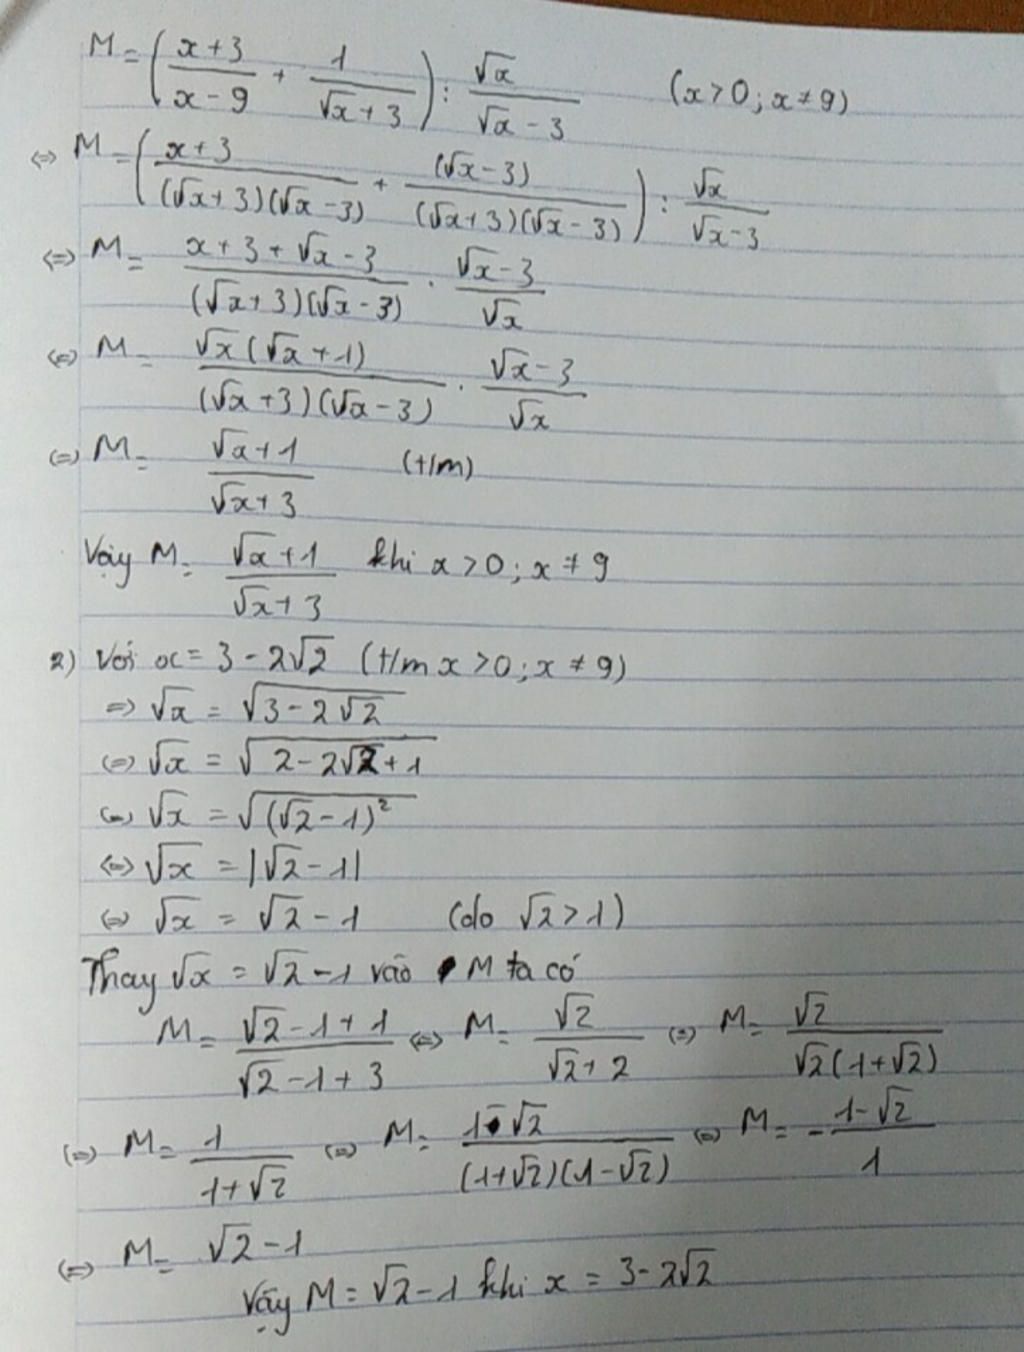 M = ( (x+3)/(x-9) + 1/(√x+3) ) : √x/(√x-3) (x>0; x≠9)
⇔ M = ( (x+3)/((√x+3)(√x-3)) + (√x-3)/((√x+3)(√x-3)) ) : √x/(√x-3)
⇔ M = (x+3+√x-3)/((√x+3)(√x-3)) . (√x-3)/√x
⇔ M = √x(√x+1)/((√x+3)(√x-3)) . (√x-3)/√x
⇔ M = (√x+1)/(√x+3) (t/m)
Vậy M = (√x+1)/(√x+3) khi x>0; x≠9
2) Với x = 3-2√2 (t/m x>0; x≠9)
⇒ √x = √(3-2√2)
⇔ √x = √(2-2√2+1)
⇔ √x = √((√2-1)²)
⇔ √x = |√2-1|
⇔ √x = √2-1 (do √2>1)
Thay √x = √2-1 vào M ta có
M = (√2-1+1)/(√2-1+3) ⇔ M = √2/(√2+2) ⇔ M = √2/(√2(1+√2))
⇔ M = 1/(1+√2) ⇔ M = (1-√2)/((1+√2)(1-√2)) ⇔ M = -(1-√2)/1
⇔ M = √2-1
Vậy M = √2-1 khi x = 3-2√2